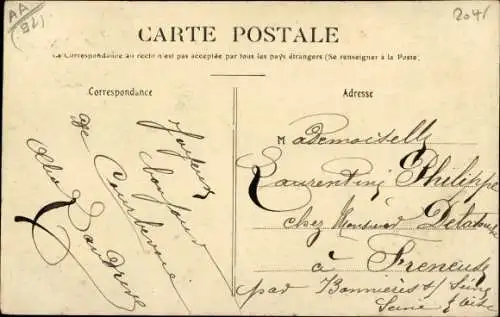 AA
(92)
2041
CARTE POSTALE
La Correspondance au recto n'est pas acceptée par tous les pays étrangers (Se renseigner à la Poste.
Correspondance
Joyeux
bonjour
Courbevoie
Adresse
Mademoiselle
Laurentine Philippe
chez Monsieur
à Freneuse
par Bonnières s/ Seine
Seine & Oise